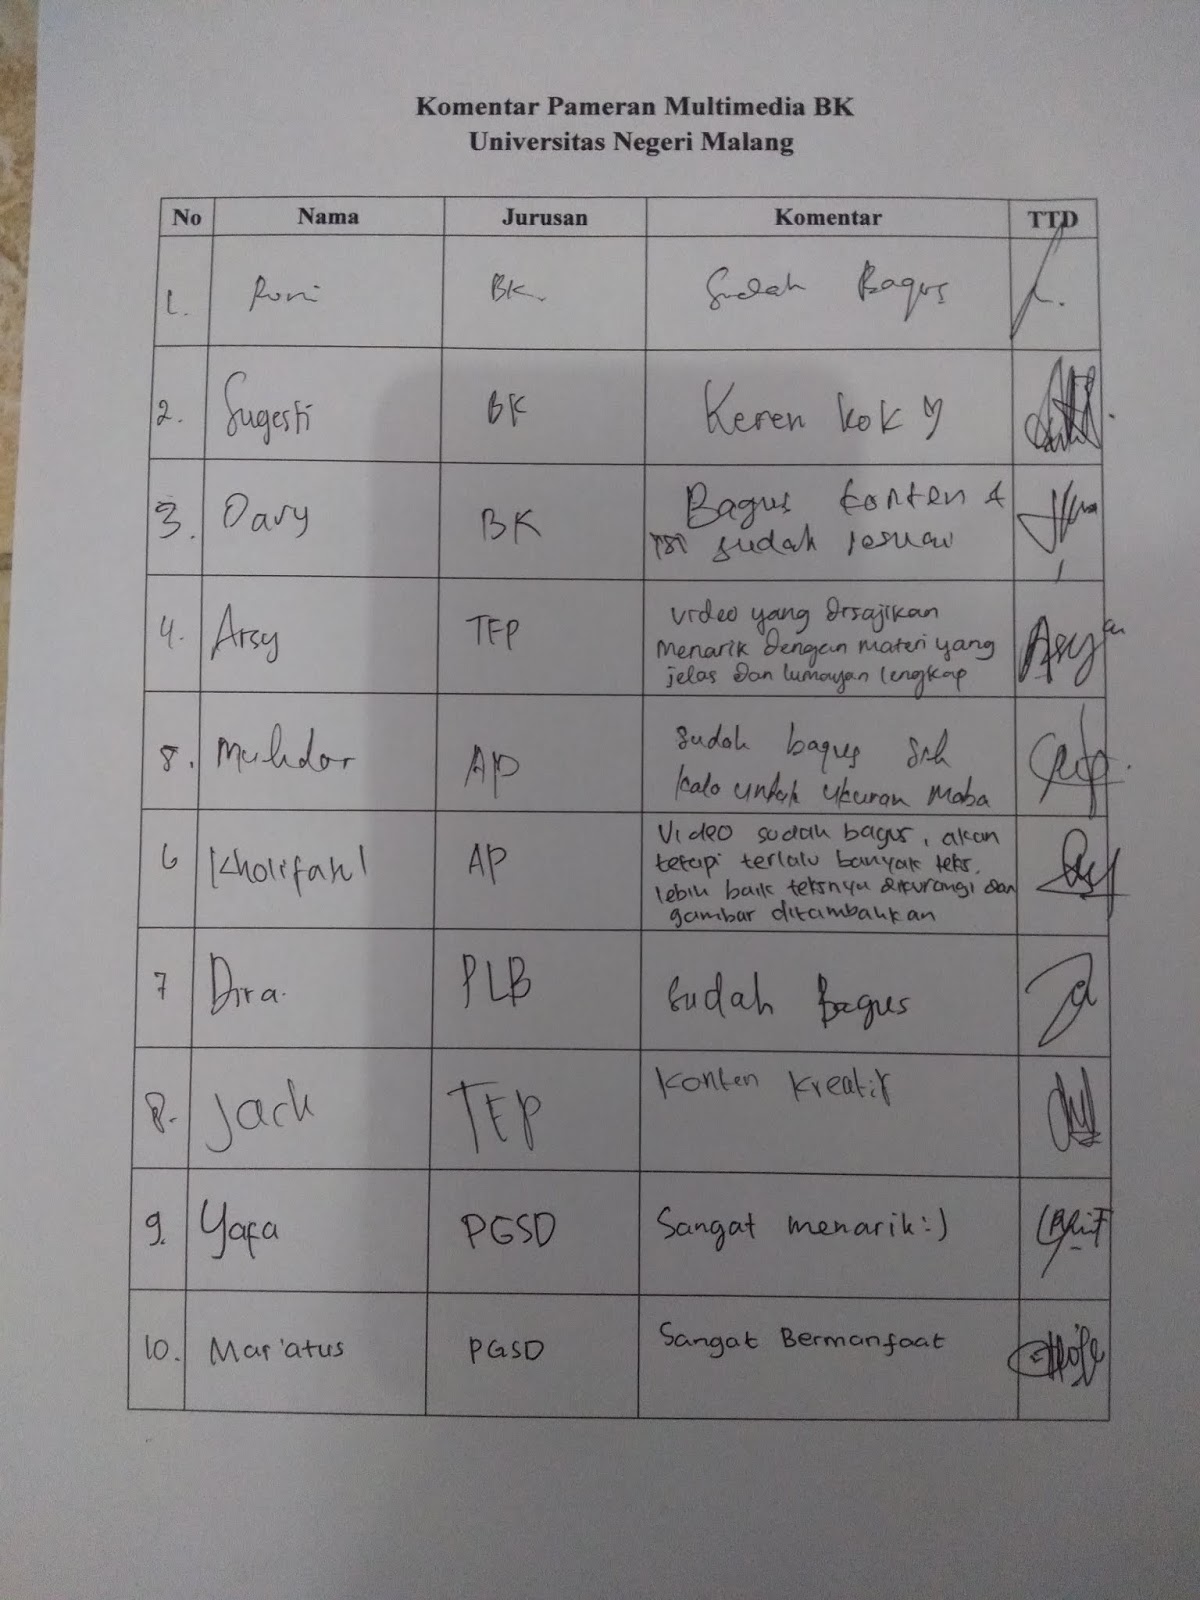 Komentar Pameran Multimedia BK
Universitas Negeri Malang
No Nama Jurusan Komentar TTD
1. Roni BK. Sudah Bagus
2. Sugesti BK Keren kok
3. Davy BK Bagus konten &
isi sudah sesuai
4. Arsy TEP video yang disajikan
menarik dengan materi yang
jelas dan lumayan lengkap
5. Muhdor AP sudah bagus sih
kalo untuk ukuran maba
6 Kholifah AP Video sudah bagus, akan
tetapi terlalu banyak teks,
lebih baik teksnya dikurangi dan
gambar ditambahkan
7 Dira. PLB Sudah Bagus
8. Jack TEP Konten Kreatif
9. Yafa PGSD Sangat menarik :)
10. Mar'atus PGSD Sangat Bermanfaat